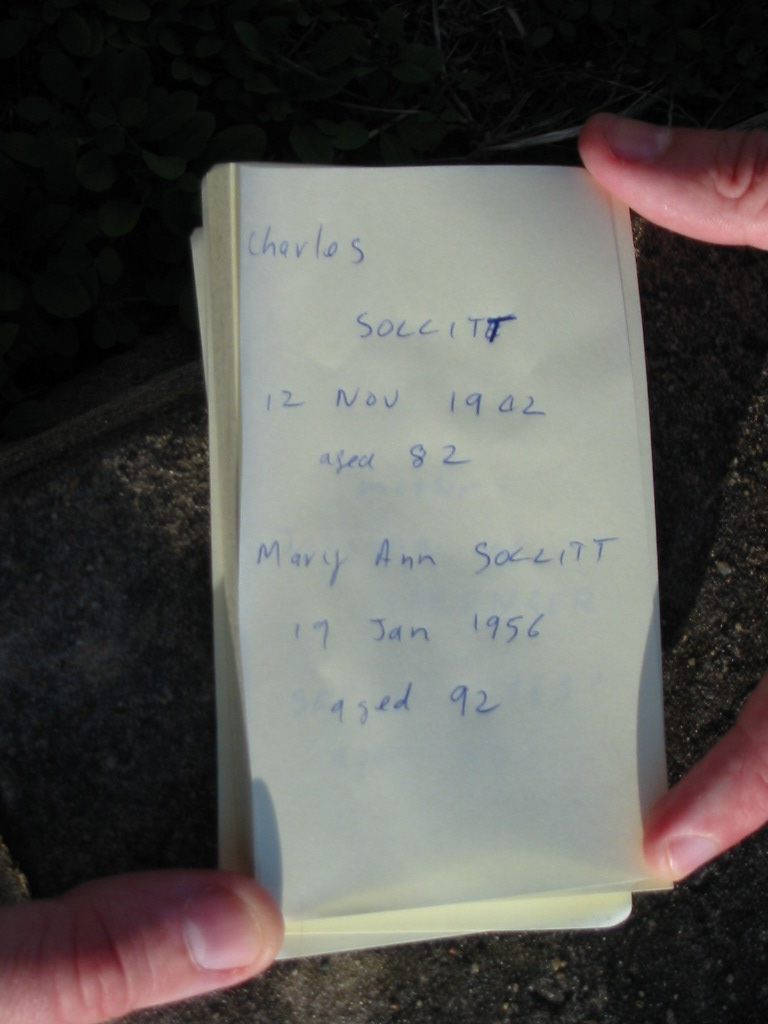 Charles
SOLLITT
12 NOV 1942
aged 82
Mary Ann SOLLITT
19 Jan 1956
aged 92